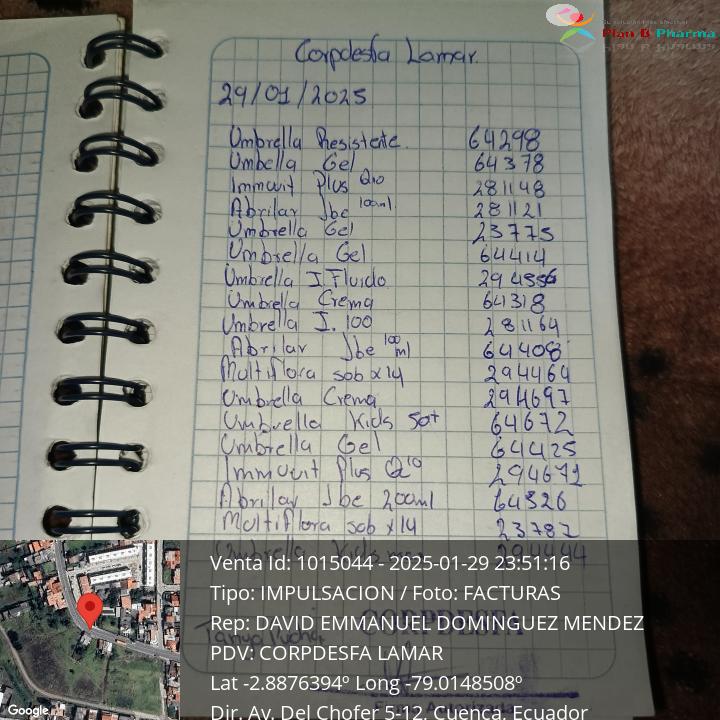 Plan B Pharma
Corpdesfa Lamar.
29/01/2025
Umbrella Resistente. 64298
Umbella Gel 64378
Immuvit Plus Q10 281148
Abrilar Jbe 100ml. 281121
Umbrella Gel 23775
Umbrella Gel 64414
Umbrella I. Fluido 294556
Umbrella Crema 64318
Umbrella I. 100 281164
Abrilar Jbe 100 ml 64408
Multiflora sob x14 294464
Umbrella Crema 294697
Umbrella Kids 50+ 64672
Umbrella Gel 64425
Immuvit Plus Q10 294671
Abrilar Jbe 200ml 64326
Multiflora sob x14 23782
Umbrella Kids 294444
Venta Id: 1015044 - 2025-01-29 23:51:16
Tipo: IMPULSACION / Foto: FACTURAS
Rep: DAVID EMMANUEL DOMINGUEZ MENDEZ
CORPDESFA
PDV: CORPDESFA LAMAR
Lat -2.8876394º Long -79.0148508º
Dir. Av. Del Chofer 5-12, Cuenca, Ecuador
Google